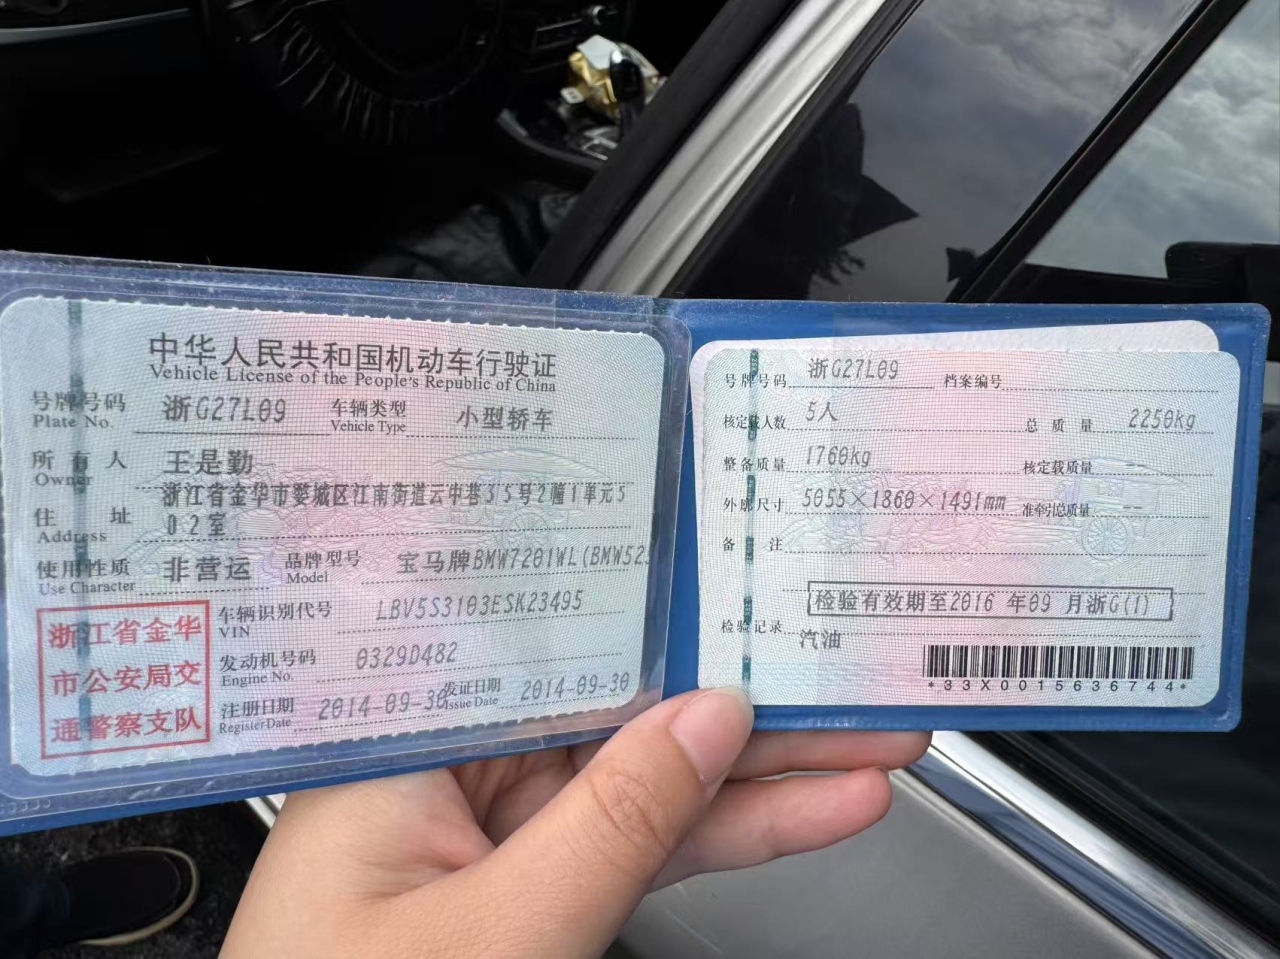 中华人民共和国机动车行驶证
Vehicle License of the People's Republic of China
号牌号码 浙G27L09 车辆类型 小型轿车
Plate No. Vehicle Type
所有人 王是勤
Owner
浙江省金华市婺城区江南街道云中巷35号2幢1单元5
住址 02室
Address
使用性质 非营运 品牌型号 宝马牌BMW7201WL(BMW525
Use Character Model
浙江省金华
市公安局交
通警察支队
车辆识别代号 LBV5S3103ESK23495
VIN
发动机号码 0329D482
Engine No.
注册日期 2014-09-30 发证日期 2014-09-30
Register Date Issue Date
号牌号码 浙G27L09 档案编号
核定载人数 5人 总质量 2250kg
整备质量 1760kg 核定载质量
外廓尺寸 5055×1860×1491mm 准牵引总质量 --
备注
检验有效期至2016 年09 月浙G(1)
检验记录 汽油
*33X0015636744*